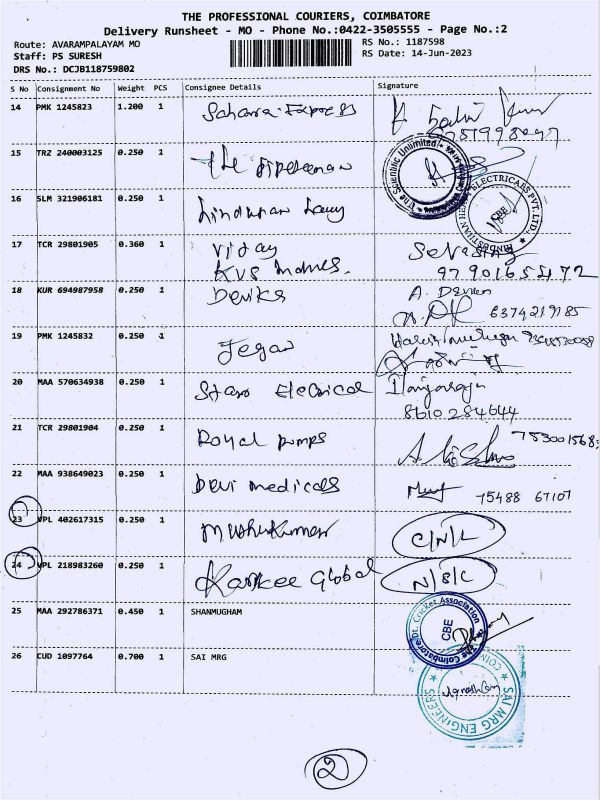 THE PROFESSIONAL COURIERS, COIMBATORE
Delivery Runsheet - MO - Phone No.:0422-3505555 - Page No.:2
Route: AVARAMPALAYAM MO RS No.: 1187598
Staff: PS SURESH RS Date: 14-Jun-2023
DRS No.: DCJB118759802
S No Consignment No Weight PCS Consignee Details Signature
14 PMK 1245823 1.200 1 Sahara Express
15 TRZ 240003125 0.250 1 The
The Scientific Unlimited
16 SLM 321906181 0.250 1
ELECTRICALS PVT. LTD. CBE
17 TCR 29801905 0.360 1 Vijay
KVS Indnes. 9790165472
18 KUR 694987958 0.250 1 Devika A. Devika
6374219185
19 PMK 1245832 0.250 1 Jegan
20 MAA 570634938 0.250 1 Staro Eletrical Ilangaraja
8610284644
21 TCR 29801904 0.250 1 Royal pumps 753001568
22 MAA 938649023 0.250 1 Devi medicals 75488 67107
23 VPL 402617315 0.250 1 Muthukumar C/N/L
24 VPL 218983260 0.250 1 Karkee Global N/S/C
25 MAA 292786371 0.450 1 SHANMUGHAM
The Coimbatore Dt. Cricket Association CBE
26 CUD 1097764 0.700 1 SAI MRG
SAI MRG ENGINEERS
2